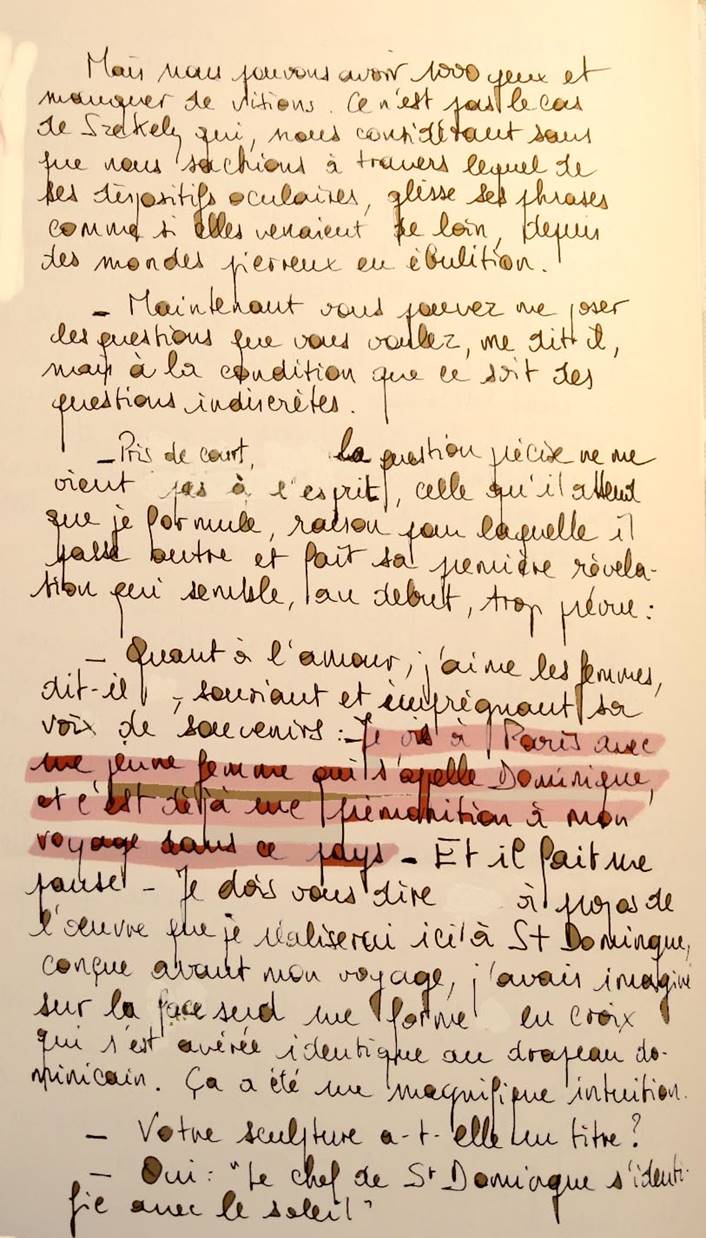 Mais nous pouvons avoir 1000 yeux et
manquer de visions. Ce n'est pas le cas
de Szekely qui, nous considérant sans
que nous sachions à travers lequel de
ses dispositifs oculaires, glisse ses phrases
comme si elles venaient de loin, depuis
des mondes pierreux en ébulition.
– Maintenant vous pouvez me poser
les questions que vous voulez, me dit il,
mais à la condition que ce soit des
questions indiscrètes.
– Pris de court, la question précise ne me
vient pas à l'esprit, celle qu'il attend
que je formule, raison pour laquelle il
passe outre et fait sa première révéla-
tion qui semble, au debut, trop prévue:
– Quant à l'amour, j'aime les femmes,
dit-il, souriant et imprégnant sa
voix de souvenirs: – Je vis à Paris avec
une jeune femme qui s'apelle Dominique,
et c'est déjà une prémonition à mon
voyage dans ce pays – Et il fait une
pause – Je dois vous dire à propos de
l'oeuvre que je réaliserai ici à St Domingue,
conçue avant mon voyage, j'avais imaginé
sur la face sud une forme en croix
qui s'est avérée identique au drapeau do-
minicain. Ça a été une magnifique intuition.
– Votre sculpture a-t-elle un titre?
– Oui: "Le chef de St Domingue s'identi-
fie avec le soleil"